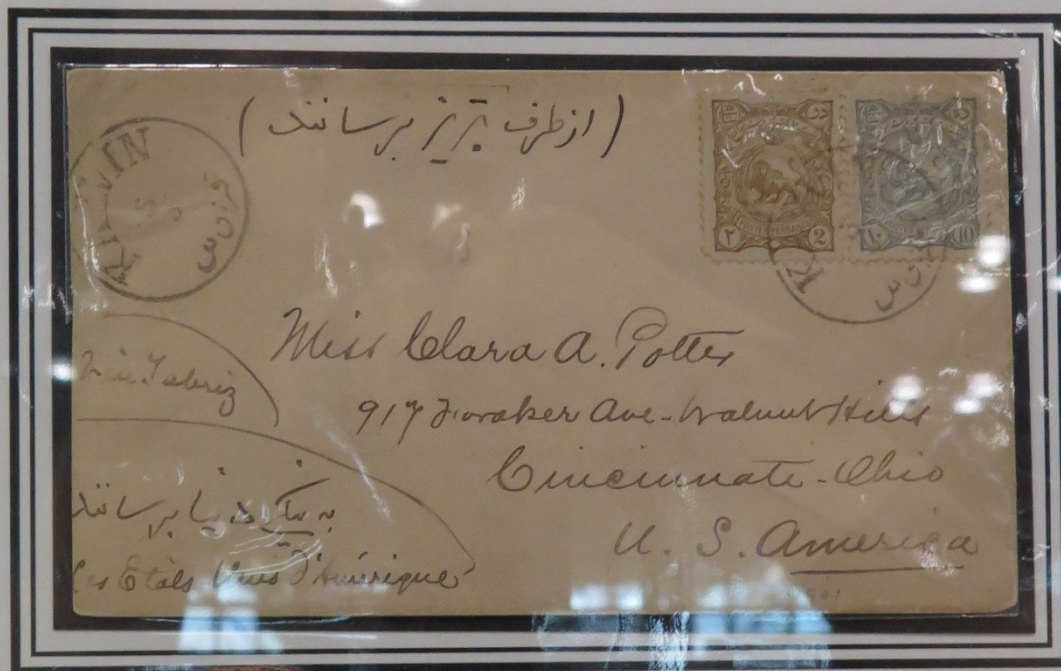 (از طرف تبریز برسانند)
KAZVIN
قزوین
۲ 2
۱۰ 10
قزوین
Miss Clara A. Potter
917 Foraker Ave - Walnut Hills
Cincinnate - Ohio
U. S. America
Via Tabriz
به ینگی دنیا برسانند
Les Etats Unis d'Amérique